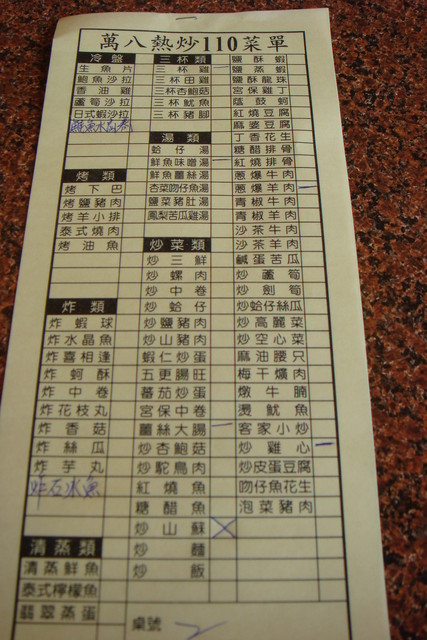 萬八熱炒110菜單
冷盤
生魚片
鮑魚沙拉
香油雞
蘆筍沙拉
日式蝦沙拉
烤類
烤下巴
烤鹽豬肉
烤羊小排
泰式燒肉
烤油魚
炸類
炸蝦球
炸水晶魚
炸喜相逢
炸蚵酥
炸中卷
炸花枝丸
炸香菇
炸絲瓜
炸芋丸
炸石冰魚
清蒸類
清蒸鮮魚
泰式檸檬魚
翡翠蒸蛋
三杯類
三杯雞
三杯田雞
三杯杏鮑菇
三杯魷魚
三杯豬腳
湯類
蛤仔湯
鮮魚味噌湯
鮮魚薑絲湯
杏菜吻仔魚湯
鹽菜豬肚湯
鳳梨苦瓜雞湯
炒菜類
炒三鮮
炒螺肉
炒中卷
炒蛤仔
炒鹽豬肉
炒山豬肉
蝦仁炒蛋
五更腸旺
蕃茄炒蛋
宮保中卷
薑絲大腸
炒杏鮑菇
炒鴕鳥肉
紅燒魚
糖醋魚
炒山蘇
炒麵
炒飯
桌號
鹽酥蝦
鹽蒸蝦
鹽酥龍珠
宮保雞丁
蔭鼓蚵
紅燒豆腐
麻婆豆腐
丁香花生
糖醋排骨
紅燒排骨
蔥爆牛肉
蔥爆羊肉
青椒牛肉
青椒羊肉
沙茶牛肉
沙茶羊肉
鹹蛋苦瓜
炒蘆筍
炒劍筍
炒蛤仔絲瓜
炒高麗菜
炒空心菜
麻油腰只
梅干爌肉
燉牛腩
燙魷魚
客家小炒
炒雞心
炒皮蛋豆腐
吻仔魚花生
泡菜豬肉